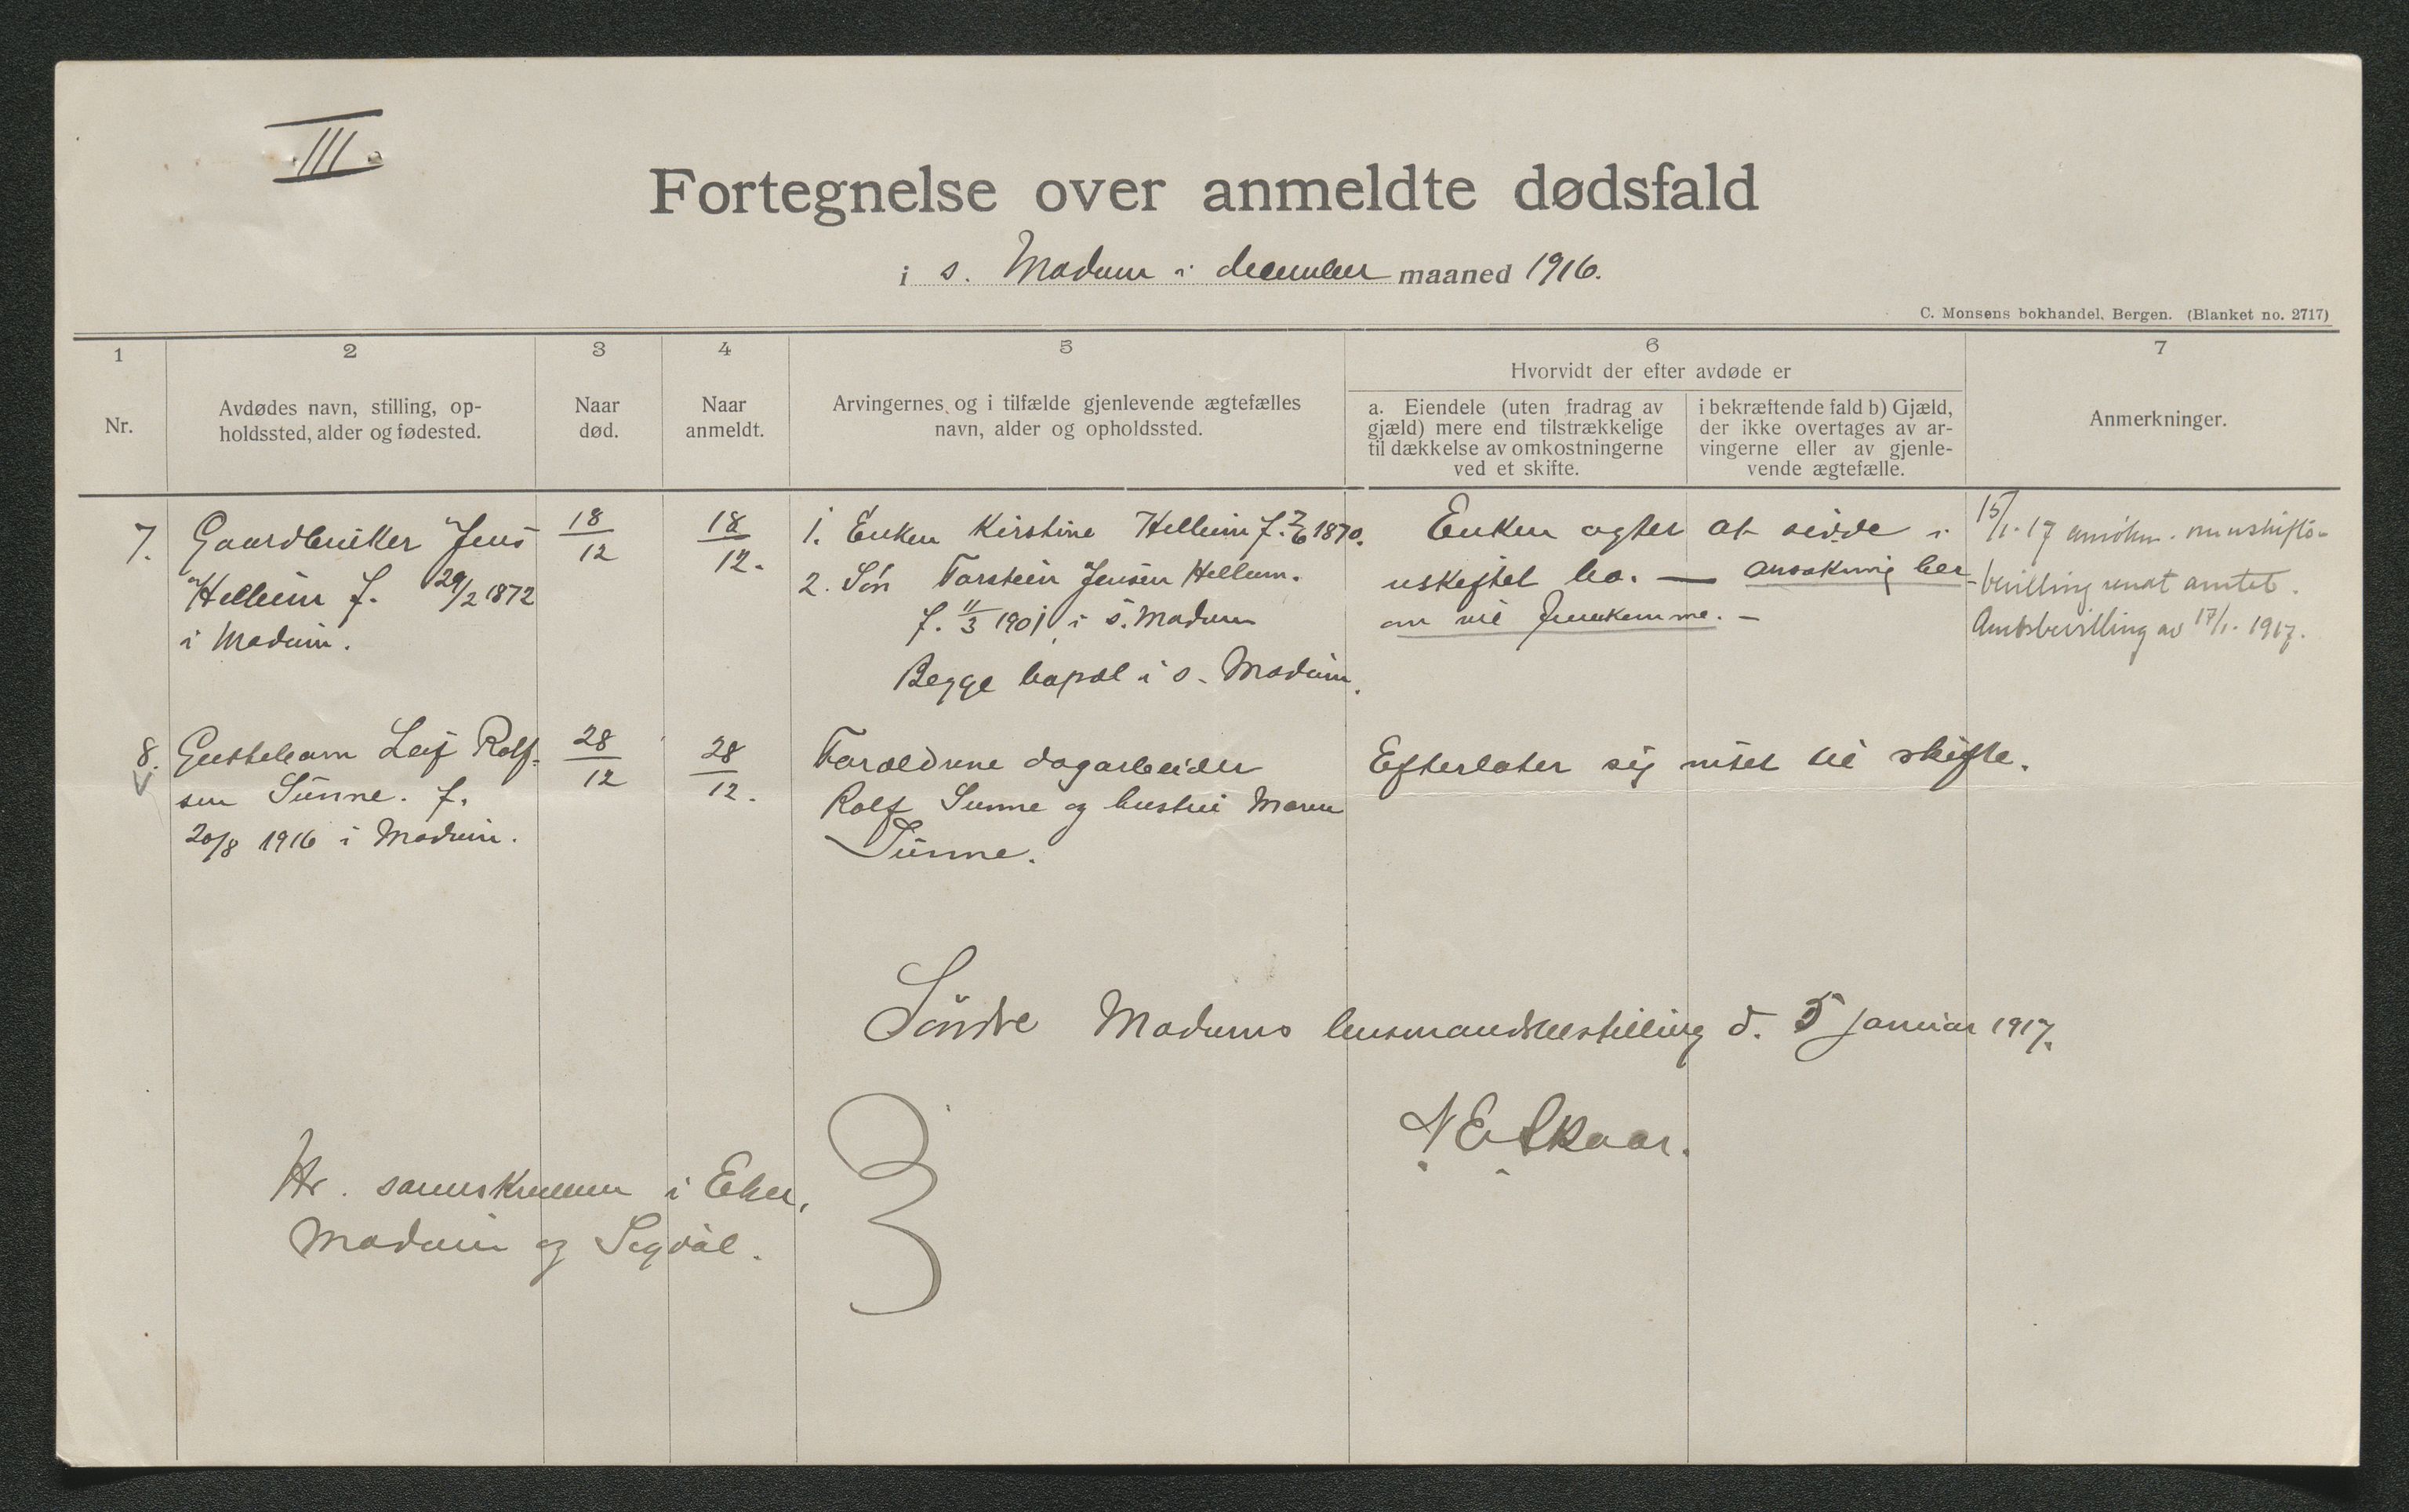 III.
Fortegnelse over anmeldte dødsfald
i s. Modum i december maaned 1916.
C. Monsens bokhandel, Bergen. (Blanket no. 2717)
1
Nr.
2
Avdødes navn, stilling, op-
holdssted, alder og fødested.
3
Naar
død.
4
Naar
anmeldt.
5
Arvingernes og i tilfælde gjenlevende ægtefælles
navn, alder og opholdssted.
6
Hvorvidt der efter avdøde er
a. Eiendele (uten fradrag av
gjæld) mere end tilstrækkelige
til dækkelse av omkostningerne
ved et skifte.
i bekræftende fald b) Gjæld,
der ikke overtages av ar-
vingerne eller av gjenle-
vende ægtefælle.
7
Anmerkninger.
7.
Gaardbruker Jens
Hellum f. 29/2 1872
i Modum.
18/12
18/12.
1. Enken Kirstine Hellum f. 7/6 1870.
2. Søn Torstein Jensen Hellum.
f. 11/3 1901 i s. Modum
Begge bopæl i s. Modum.
Enken agter at sidde i
uskiftet bo. — Ansøkning her-
om vil fremkomme. —
15/1. 17 ansøkn. om uskifte-
bevilling sendt amtet.
Amtsbevilling av 17/1. 1917.
8.
Guttebarn Leif Rolf-
sen Sunne. f.
20/8 1916 i Modum.
28/12
28/12.
Forældrene dagarbeider
Rolf Sunne og hustru Maren
Sunne.
Efterlater sig intet til skifte.
Søndre Modums lensmandsbestilling d. 5 januar 1917.
N E Skaar.
Hr. sorenskriveren i Eker,
Modum og Sigdal.
3